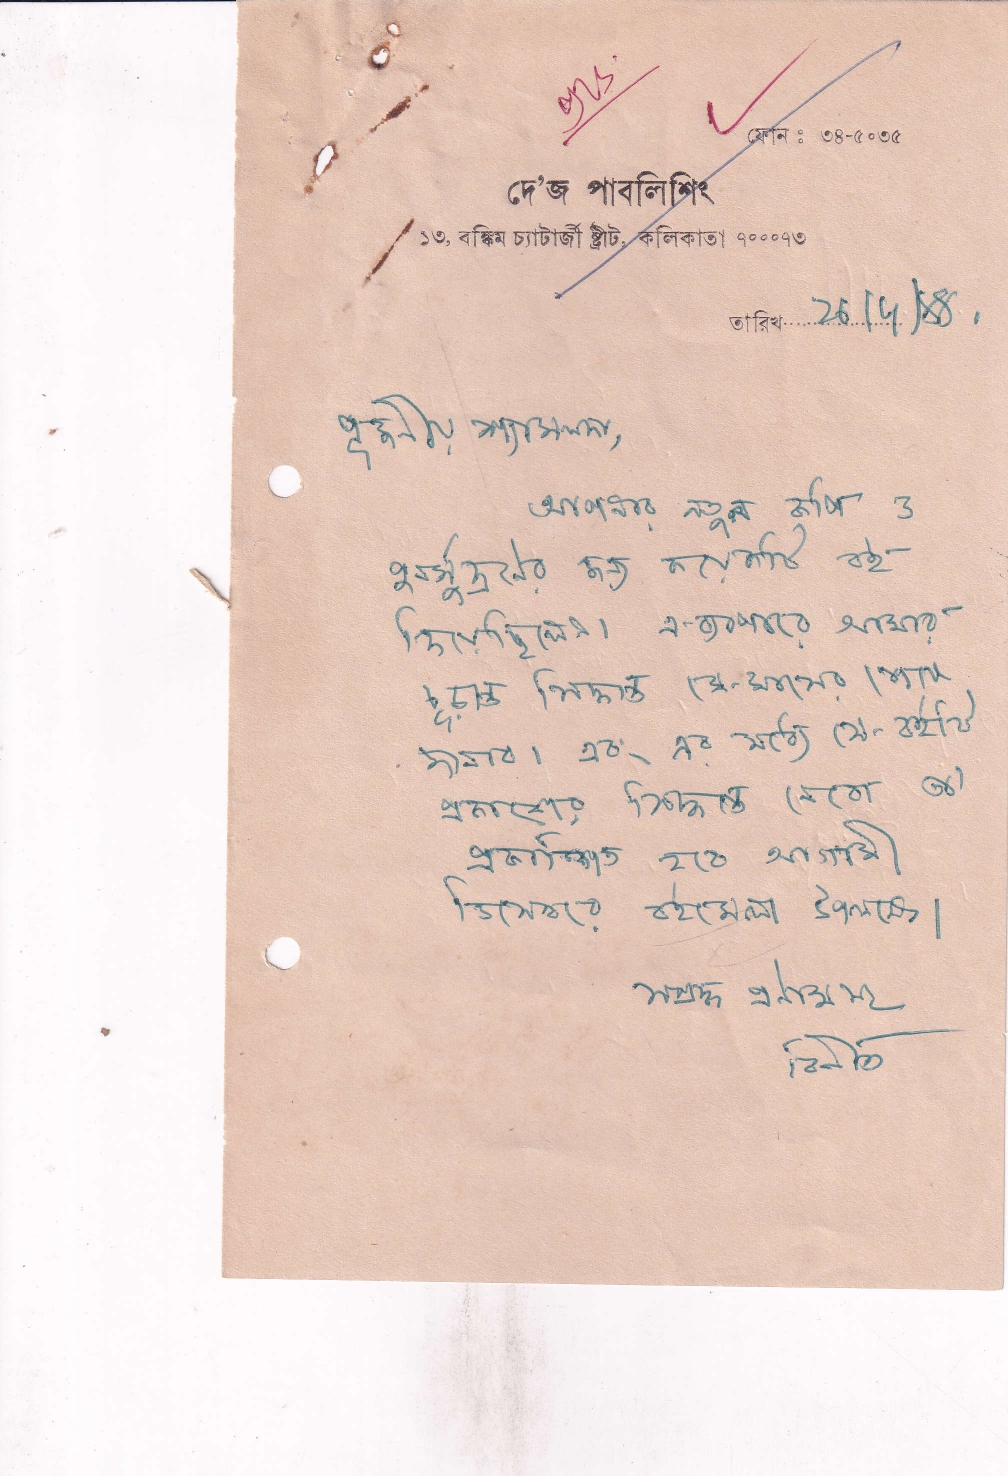 ফোন : ৩৪-৫০৩৫
দে'জ পাবলিশিং
১৩, বঙ্কিম চ্যাটার্জী ষ্ট্রীট, কলিকাতা ৭০০০৭৩
তারিখ
পূজনীয় শ্যামলদা,
আপনার নতুন কপি ও
পুনর্মুদ্রণের জন্য কয়েকটি বই
দিয়েছিলেন। এ-ব্যাপারে আমার
চূড়ান্ত সিদ্ধান্ত মে-মাসের শেষে
জানাব। এবং এর মধ্যে যে-বইটি
প্রকাশের সিদ্ধান্ত নেবো তা
প্রকাশিত হবে আগামী
ডিসেম্বরে বইমেলা উপলক্ষে।
সশ্রদ্ধ প্রণামসহ
বিনীত